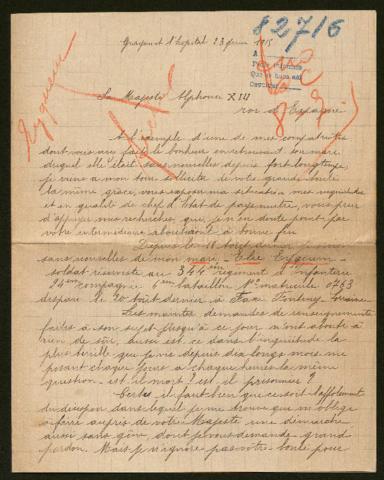 82716
Grayan et l'hopital 23 février 1915
Sa Majesté Alphonse XIII
roi d'Espagne
A l'exemple d'une de mes compatriotes
dont vous avez faite le bonheur en retrouvant son mari
duquel elle était sans nouvelles depuis fort longtemps
je viens à mon tour solliciter de votre grande bonté
la même grâce, vous exposer ma situation, mes inquiétudes
et en qualité de chef d'Etat de pays neutre, vous prier
d'appuyer mes recherches, qui, je n'en doute point par
votre intermédiaire aboutiront à bonne fin
Depuis le 18 août dernier je suis
sans nouvelles de mon mari, Elie Eyquem
soldat réserviste au 344ème régiment d'infanterie
24ème compagnie 6ème bataillon Nº matricule 0763
disparu le 20 août dernier à Faxe Fonteny Lorraine
Les maintes demandes de renseignements
faites à son sujet jusqu'à ce jour n'ont abouti à
rien de sûr, aussi est-ce dans l'inquiétude la
plus terrible que je vis depuis dix longs mois me
posant chaque jour à chaque heure la même
question: est-il mort? est-il prisonnier?
Certes il faut bien que ce soit l'affolement
du soupçon dans lequel je me trouve qui m'oblige
à faire auprès de votre Majesté une démarche
aussi sans gêne, dont je vous demande grand
pardon. Mais je n'ignore pas votre bonté pour
Eyquem